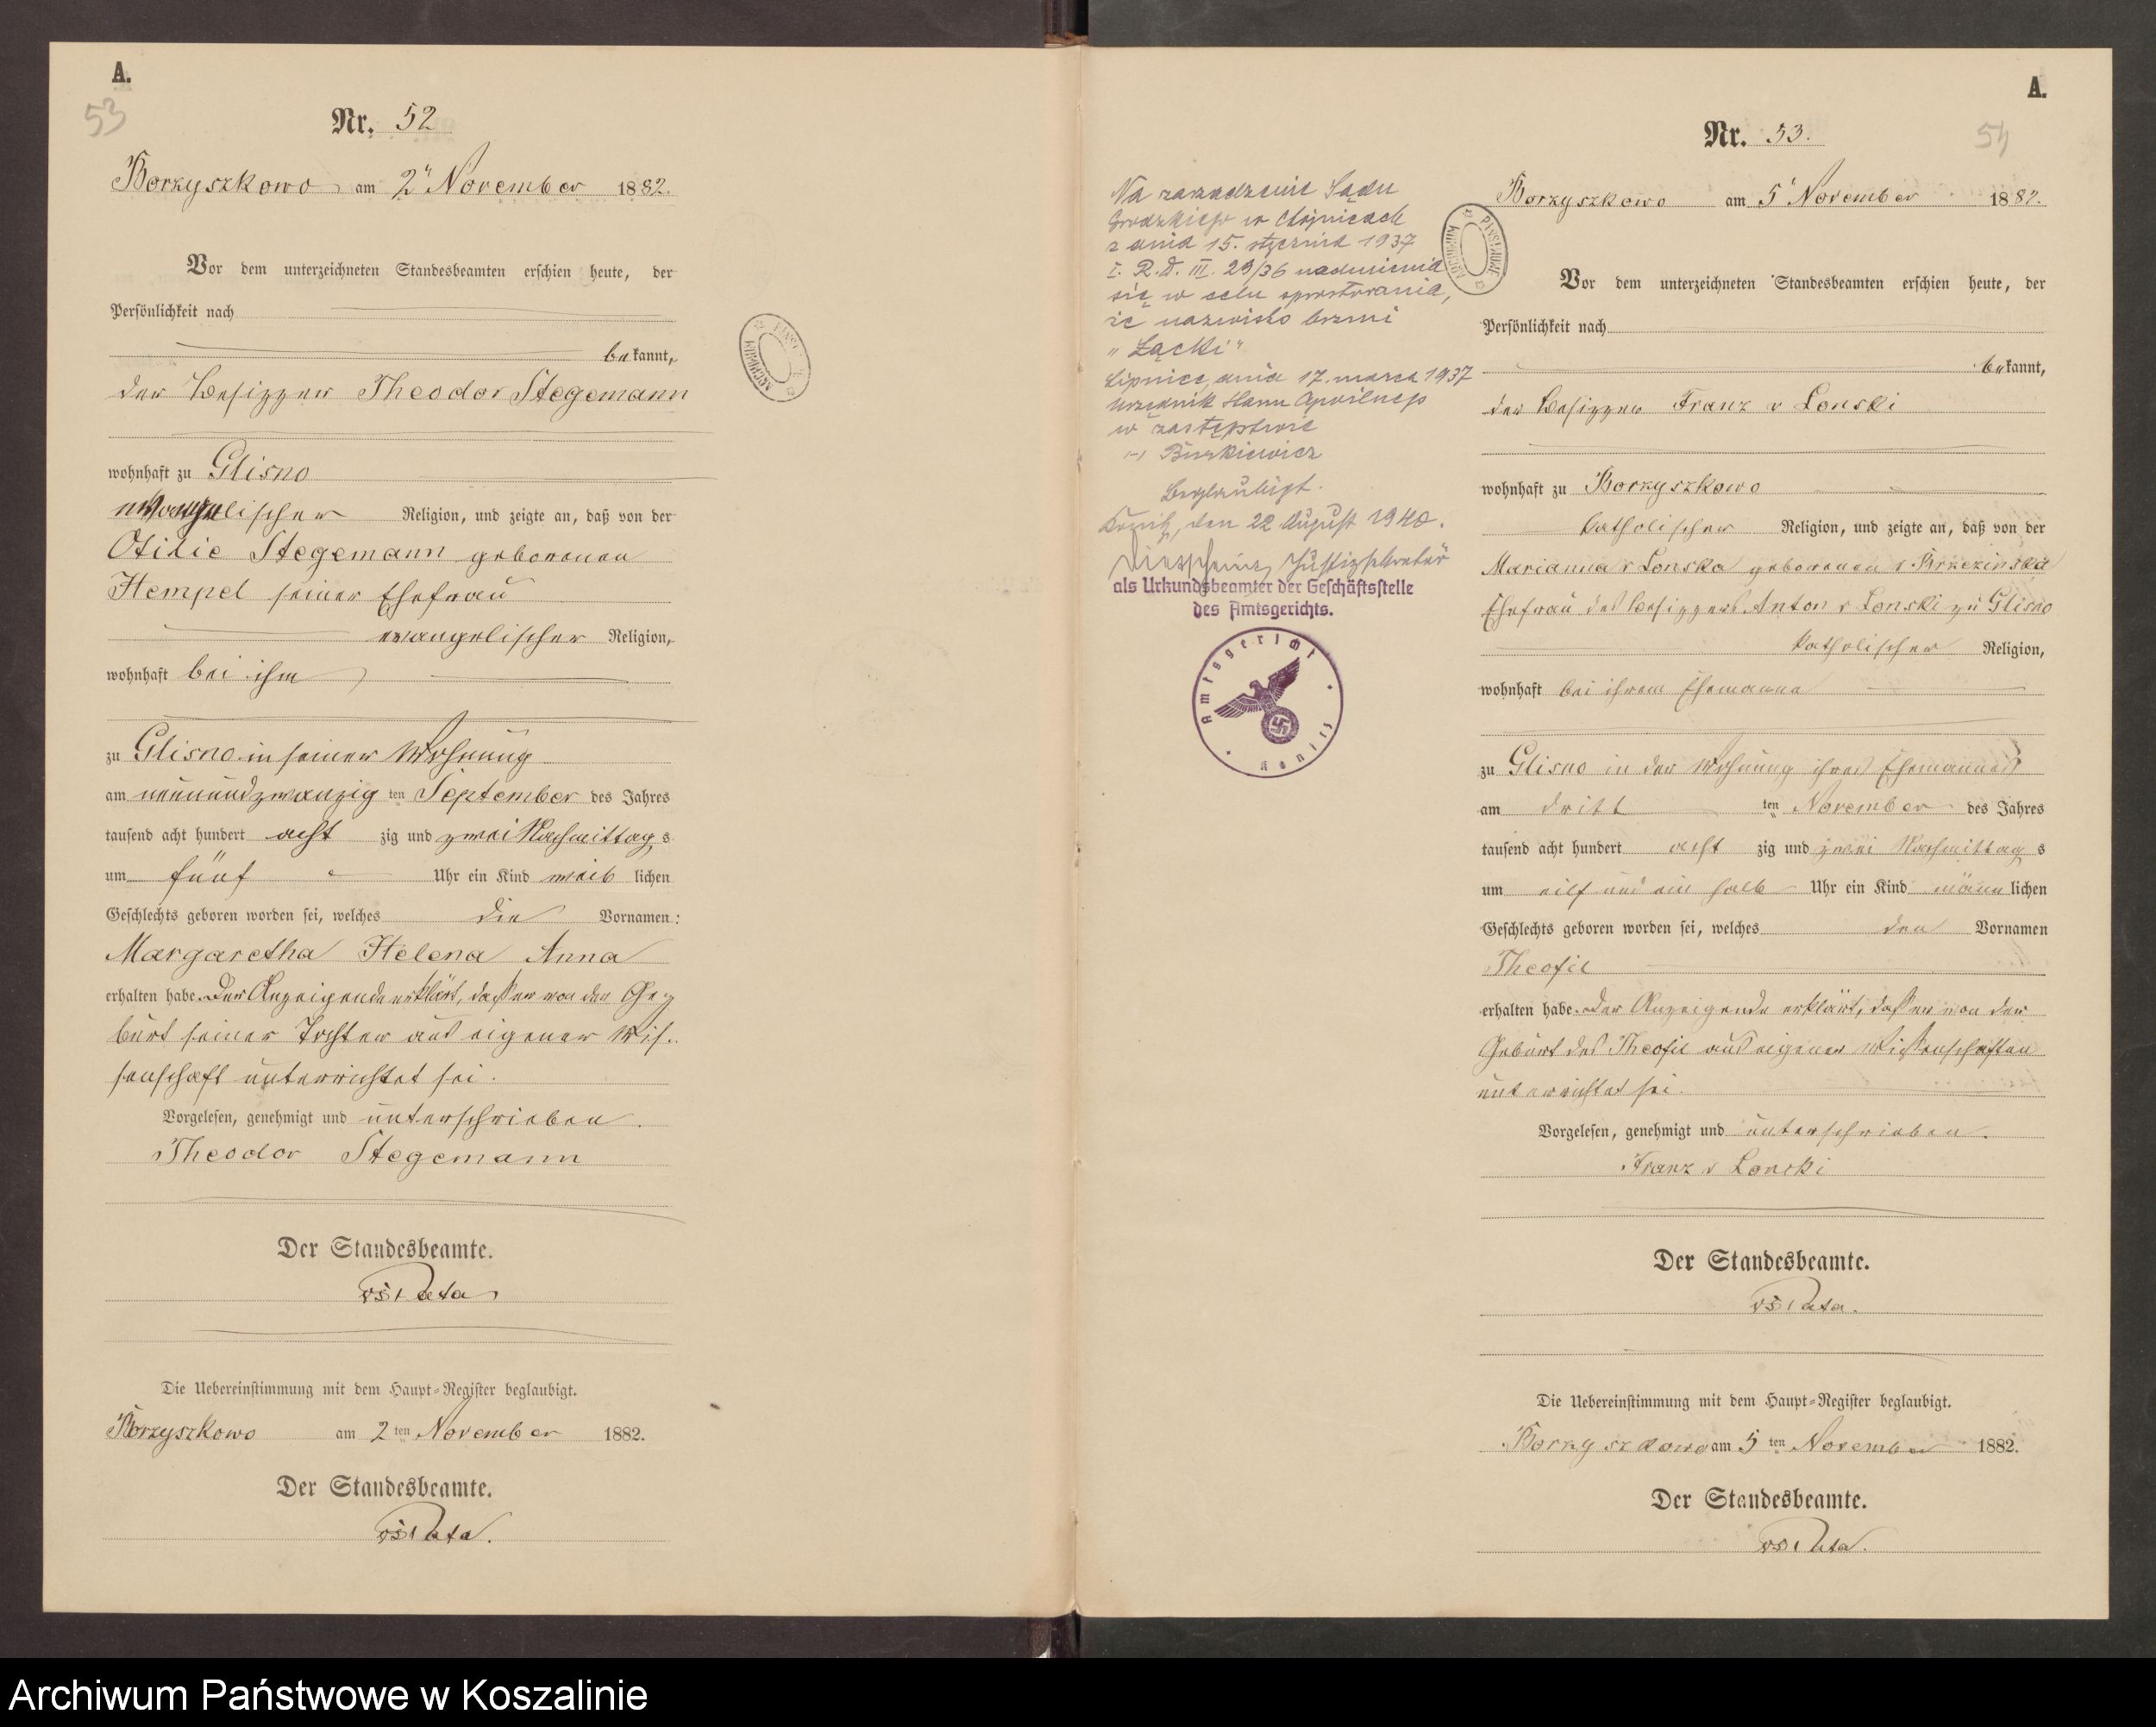 A.
53
Nr. 52
Borzyszkowo am 2ⁿ November 1882.
Vor dem unterzeichneten Standesbeamten erschien heute, der
Persönlichkeit nach
bekannt,
der Besitzer Theodor Stegemann
wohnhaft zu Glisno
evangelischer Religion, und zeigte an, daß von der
Otilie Stegemann geborenen
Hempel seiner Ehefrau
evangelischer Religion,
wohnhaft bei ihm
zu Glisno in seiner Wohnung
am neunundzwanzig ten September des Jahres
tausend acht hundert acht zig und zwei Nachmittag s
um fünf Uhr ein Kind weib lichen
Geschlechts geboren worden sei, welches die Vornamen:
Margaretha Helena Anna
erhalten habe. Der Anzeigende erklärt, daß er von der Ge-
burt seiner Tochter aus eigener Wis-
senschaft unterrichtet sei.
Vorgelesen, genehmigt und unterschrieben.
Theodor Stegemann
Der Standesbeamte.
Die Uebereinstimmung mit dem Haupt-Register beglaubigt.
Borzyszkowo am 2 ten November 1882.
Der Standesbeamte.
Na zarządzenie Sądu
Grodzkiego w Chojnicach
z dnia 15. stycznia 1937
I. R. D. III. 29/36 nadmienia
się w celu sprostowania,
że nazwisko brzmi
„Łącki”
Lipnica, dnia 17. marca 1937
Urzędnik Stanu Cywilnego
w zastępstwie
(-) Burkiewicz
Beglaubigt.
Konitz, den 22 August 1940.
Justizsekretär
als Urkundsbeamter der Geschäftsstelle
des Amtsgerichts.
Amtsgericht
Konitz
A.
54
Nr. 53.
Borzyszkowo am 5ⁿ November 1882.
Vor dem unterzeichneten Standesbeamten erschien heute, der
Persönlichkeit nach
bekannt,
der Besitzer Franz v Lonski
wohnhaft zu Borzyszkowo
katholischer Religion, und zeigte an, daß von der
Marianna v Lonska geborenen v
Ehefrau des Besitzers Anton v Lonski zu Glisno
katholischer Religion,
wohnhaft bei ihrem Ehemanne
zu Glisno in der Wohnung ihres Ehemannes
am dritt ten November des Jahres
tausend acht hundert acht zig und zwei Nachmittag s
um eilf und ein halb Uhr ein Kind männ lichen
Geschlechts geboren worden sei, welches den Vornamen
Theofil
erhalten habe. Der Anzeigende erklärt, daß er von der
Geburt des Theofil aus eigener Wissenschaften
unterrichtet sei.
Vorgelesen, genehmigt und unterschrieben.
Franz v Loncki
Der Standesbeamte.
Die Uebereinstimmung mit dem Haupt-Register beglaubigt.
Borzyszkowo am 5 ten November 1882.
Der Standesbeamte.
Archiwum Państwowe w Koszalinie